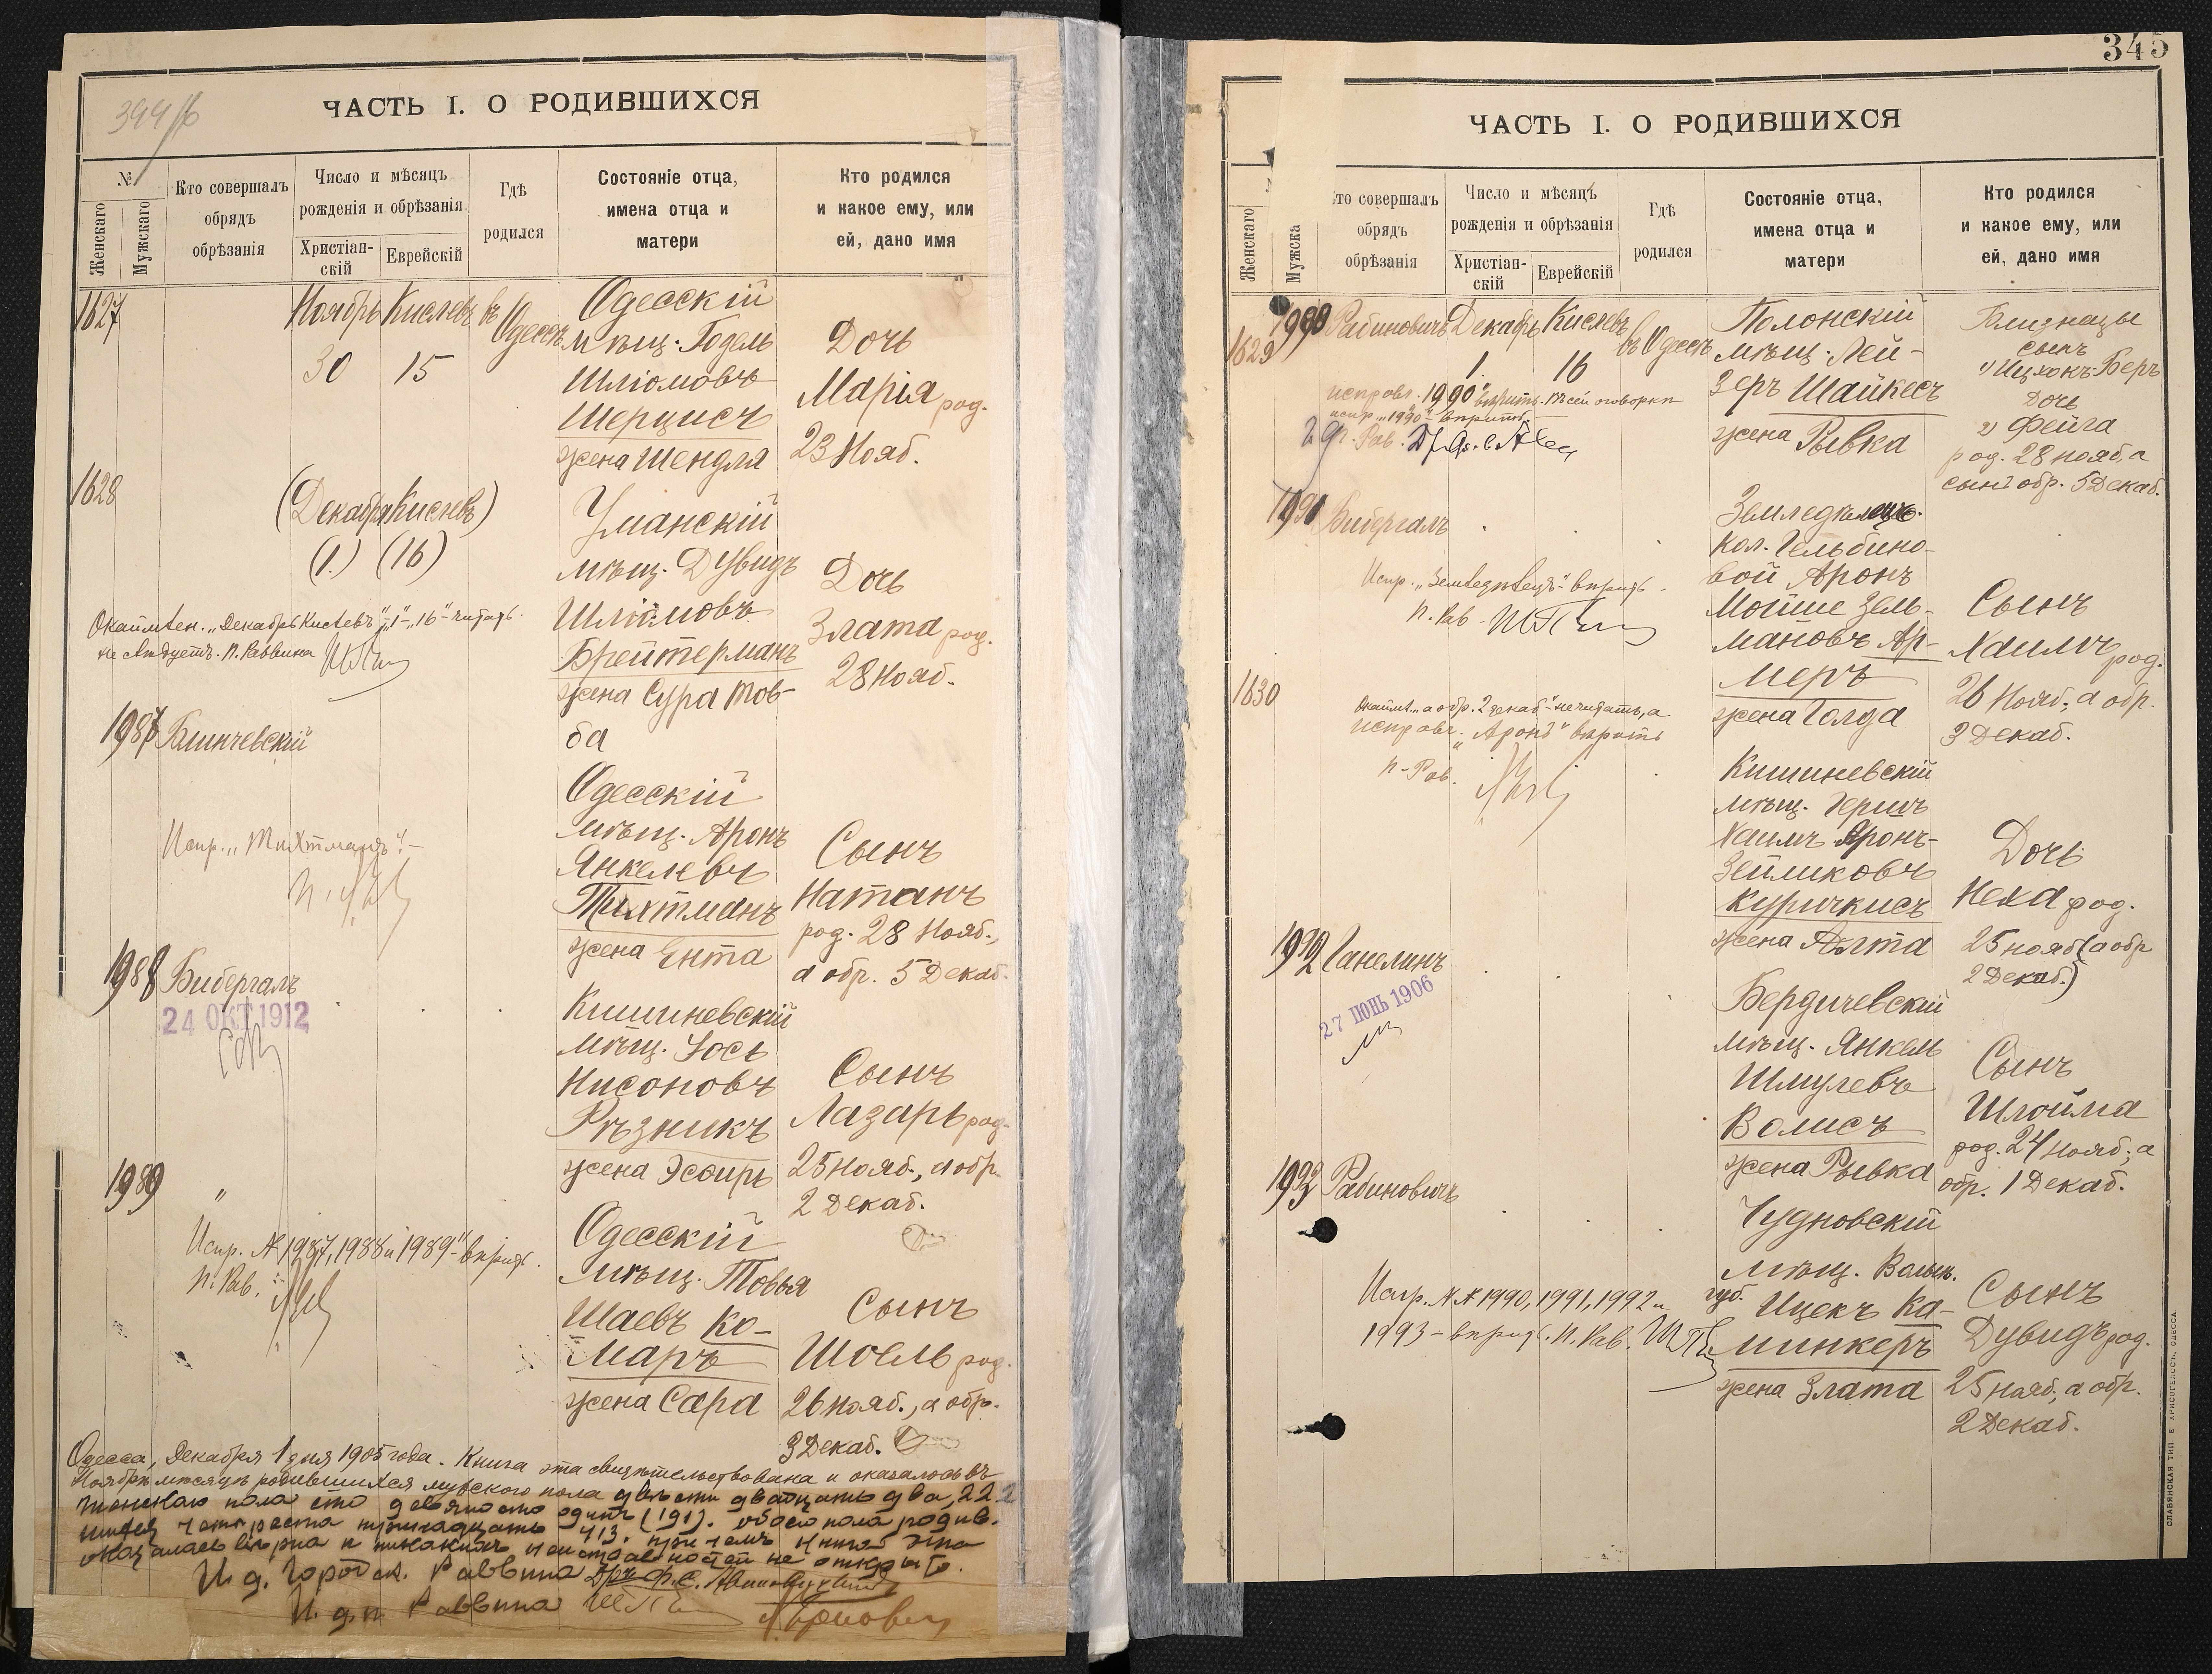 394/б
ЧАСТЬ I. О РОДИВШИХСЯ
№
Женскаго
Мужскаго
Кто совершалъ
обрядъ
обрѣзанія
Число и мѣсяцъ
рожденія и обрѣзанія
Христіан-
скій
Еврейскій
Гдѣ
родился
Состояніе отца,
имена отца и
матери
Кто родился
и какое ему, или
ей, дано имя
1627
Ноябрь Кислевъ въ Одессѣ
30 15
Одесскій
мѣщ. Годель
Шліомовъ
Шерцисъ
жена Шендля
Дочь
Марія род.
23 Нояб.
1628
(Декабря Кислевъ)
(1.) (16)
Уманскій
мѣщ. Дувидъ
Шліомовъ
Брейтерманъ
жена Сура Тов-
ба
Дочь
Злата род.
28 Нояб.
Окаймлен. „Декабрь Кислевъ" „1" „16" – читать
не слѣдуетъ. П. Раввина
1987 Блинчевскій
Одесскій
мѣщ. Аронъ
Янкелевъ
Тихтманъ
жена Ента
Сынъ
Натанъ
род. 28 Нояб.,
а обр. 5 Декаб.
Испр. „Тихтманъ" –
1988 Бибергалъ
24 ОКТ 1912
Кишиневскій
мѣщ. Іось
Нисоновъ
Рѣзникъ
жена Эсѳирь
Сынъ
Лазарь род.
25 Нояб., а обр.
2 Декаб.
1989 "
Одесскій
мѣщ. Товья
Шаевъ Ко-
маръ
жена Сара
Сынъ
Шоель род.
26 Нояб., а обр.
3 Декаб.
Испр. № 1987, 1988 и 1989 – вѣрить.
П. Рав.
Одесса, Декабря 1 дня 1905 года. Книга эта свидѣтельствована и оказалось въ
Ноябрѣ мѣсяцѣ родившихся мужского пола двѣсти двадцать два, 222
женскаго пола сто девяносто одинъ (191). обоего пола родив-
шихся четыреста тринадцать 413. при чемъ книга эта
оказалась вѣрна и никакихъ неисправностей не открыто.
И. д. Городск. Раввина
И. д. п. Раввина
345
ЧАСТЬ I. О РОДИВШИХСЯ
Женскаго
Мужска
то совершалъ
обрядъ
обрѣзанія
Число и мѣсяцъ
рожденія и обрѣзанія
Христіан-
скій
Еврейскій
Гдѣ
родился
Состояніе отца,
имена отца и
матери
Кто родился
и какое ему, или
ей, дано имя
1990 Рабиновичъ Декабрь Кислевъ въ Одессѣ
1629
1. 16
Полонскій
мѣщ. Лей-
зеръ Шайкесъ
жена Рывка
Близнецы
сынъ
1) Ицхокъ-Беръ
Дочь
2) Фейга
род. 28 нояб., а
сынъ обр. 5 Декаб.
исправл. 1990 вѣрить.
испр. „1990" – вѣрить.
1991 Бибергалъ
Земледѣлецъ
кол. Гельбино-
вой Аронъ
Мойше Зель-
мановъ Ар-
меръ
жена Голда
Сынъ
Хаимъ род.
26 Нояб., а обр.
3 Декаб.
Испр. „Земледѣлецъ" – вѣрить.
П. Рав.
1630
Окаймл. „а обр. 2 декаб" – не читать, а
исправл. „Аронъ" вѣрить
П. Рав.
Кишиневскій
мѣщ. Гершъ
Хаимъ Аронъ-
Зейликовъ
Куричкисъ
жена Алта
Дочь
Неха род.
25 нояб. (а обр
2 Декаб.)
1992 Ганелинъ
27 ІЮНЬ 1906
Бердичевскій
мѣщ. Янкель
Шмулевъ
Волисъ
жена Рывка
Сынъ
Шлойма
род. 24 нояб., а
обр. 1 Декаб.
1993 Рабиновичъ
Чудновскій
мѣщ. Волын.
губ. Ицекъ Ка-
минкеръ
жена Злата
Сынъ
Дувидъ род.
25 нояб., а обр.
2 Декаб.
Испр. №№ 1990, 1991, 1992 и
1993 – вѣрить. П. Рав.
СЛАВЯНСКАЯ ТИП. Е. ХРИСОГЕЛОСЪ, ОДЕССА